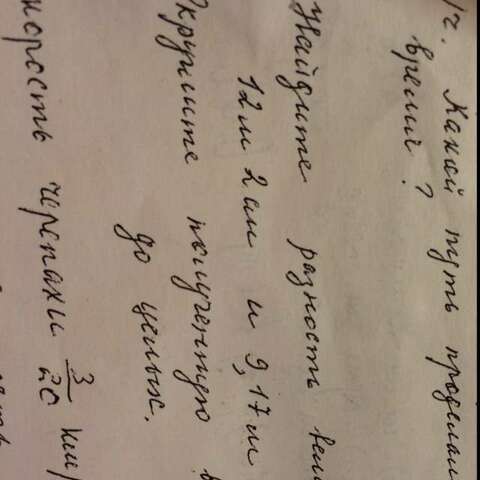 /ч. Какой путь проделал
время?
Найдите разность вели
12 м 2 см и 9,17 м
Округлите полученную в
до целых.
корость черепахи 3/20 км/